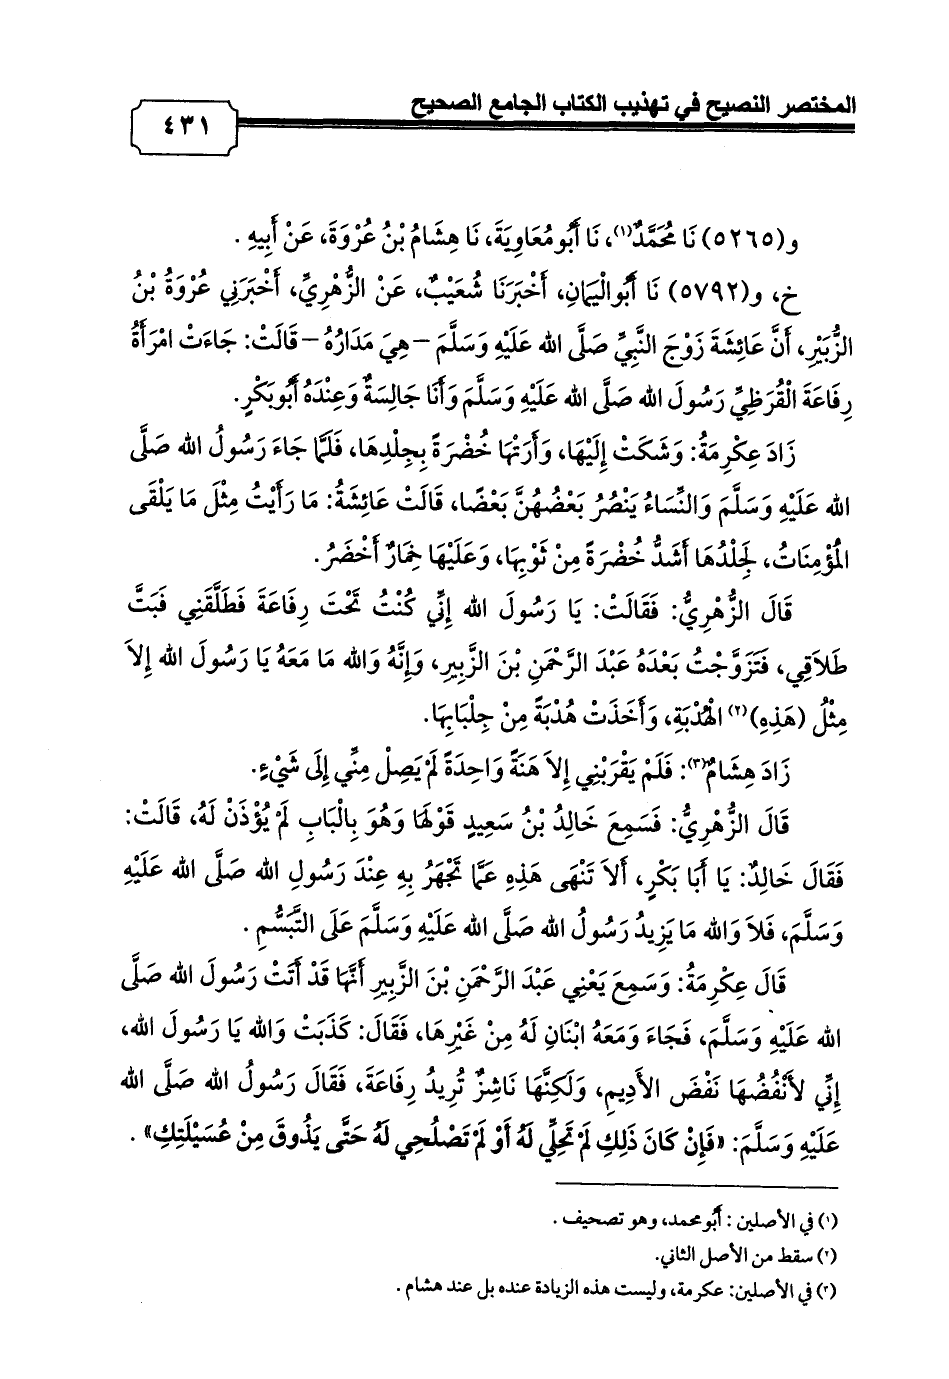 المختصر النصيح في تهذيب الكتاب الجامع الصحيح
٤٣١
و(٥٢٦٥) نَا مُحَمَّدٌ(١)، نَا أَبُومُعَاوِيَةَ، نَا هِشَامُ بْنُ عُرْوَةَ، عَنْ أَبِيهِ.
خ، و(٥٧٩٢) نَا أَبُوالْيَمَانِ، أَخْبَرَنَا شُعَيْبٌ، عَنْ الزُّهْرِيِّ، أَخْبَرَنِي عُرْوَةُ بْنُ
الزُّبَيْرِ، أَنَّ عَائِشَةَ زَوْجَ النَّبِيِّ صَلَّى الله عَلَيْهِ وَسَلَّمَ –هِيَ مَدَارُهُ– قَالَتْ: جَاءَتْ امْرَأَةُ
رِفَاعَةَ الْقُرَظِيِّ رَسُولَ الله صَلَّى الله عَلَيْهِ وَسَلَّمَ وَأَنَا جَالِسَةٌ وَعِنْدَهُ أَبُوبَكْرٍ.
زَادَ عِكْرِمَةُ: وَشَكَتْ إِلَيْهَا، وَأَرَتْهَا خُضْرَةً بِجِلْدِهَا، فَلَمَّا جَاءَ رَسُولُ الله صَلَّى
الله عَلَيْهِ وَسَلَّمَ وَالنِّسَاءُ يَنْصُرُ بَعْضُهُنَّ بَعْضًا، قَالَتْ عَائِشَةُ: مَا رَأَيْتُ مِثْلَ مَا يَلْقَى
الْمُؤْمِنَاتُ، لَجِلْدُهَا أَشَدُّ خُضْرَةً مِنْ ثَوْبِهَا، وَعَلَيْهَا خِمَارٌ أَخْضَرُ.
قَالَ الزُّهْرِيُّ: فَقَالَتْ: يَا رَسُولَ الله إِنِّي كُنْتُ تَحْتَ رِفَاعَةَ فَطَلَّقَنِي فَبَتَّ
طَلَاقِي، فَتَزَوَّجْتُ بَعْدَهُ عَبْدَ الرَّحْمَنِ بْنَ الزَّبِيرِ، وَإِنَّهُ وَالله مَا مَعَهُ يَا رَسُولَ الله إِلاَ
مِثْلُ (هَذِهِ)(٢) الْهُدْبَةِ، وَأَخَذَتْ هُدْبَةً مِنْ جِلْبَابِهَا.
زَادَ هِشَامٌ(٣): فَلَمْ يَقْرَبْنِي إِلاَ هَنَةً وَاحِدَةً لَمْ يَصِلْ مِنِّي إِلَى شَيْءٍ.
قَالَ الزُّهْرِيُّ: فَسَمِعَ خَالِدُ بْنُ سَعِيدٍ قَوْلَهَا وَهُوَ بِالْبَابِ لَمْ يُؤْذَنْ لَهُ، قَالَتْ:
فَقَالَ خَالِدٌ: يَا أَبَا بَكْرٍ، أَلاَ تَنْهَى هَذِهِ عَمَّا تَجْهَرُ بِهِ عِنْدَ رَسُولِ الله صَلَّى الله عَلَيْهِ
وَسَلَّمَ، فَلاَ وَالله مَا يَزِيدُ رَسُولُ الله صَلَّى الله عَلَيْهِ وَسَلَّمَ عَلَى التَّبَسُّمِ.
قَالَ عِكْرِمَةُ: وَسَمِعَ يَعْنِي عَبْدَ الرَّحْمَنِ بْنَ الزَّبِيرِ أَنَّهَا قَدْ أَتَتْ رَسُولَ الله صَلَّى
الله عَلَيْهِ وَسَلَّمَ، فَجَاءَ وَمَعَهُ ابْنَانِ لَهُ مِنْ غَيْرِهَا، فَقَالَ: كَذَبَتْ وَالله يَا رَسُولَ الله،
إِنِّي لأَنْفُضُهَا نَفْضَ الأَدِيمِ، وَلَكِنَّهَا نَاشِزٌ تُرِيدُ رِفَاعَةَ، فَقَالَ رَسُولُ الله صَلَّى الله
عَلَيْهِ وَسَلَّمَ: «فَإِنْ كَانَ ذَلِكِ لَمْ تَحِلِّي لَهُ أَوْ لَمْ تَصْلُحِي لَهُ حَتَّى يَذُوقَ مِنْ عُسَيْلَتِكِ».
(١) في الأصلين: أبومحمد، وهو تصحيف.
(٢) سقط من الأصل الثاني.
(٣) في الأصلين: عكرمة، وليست هذه الزيادة عنده بل عند هشام.